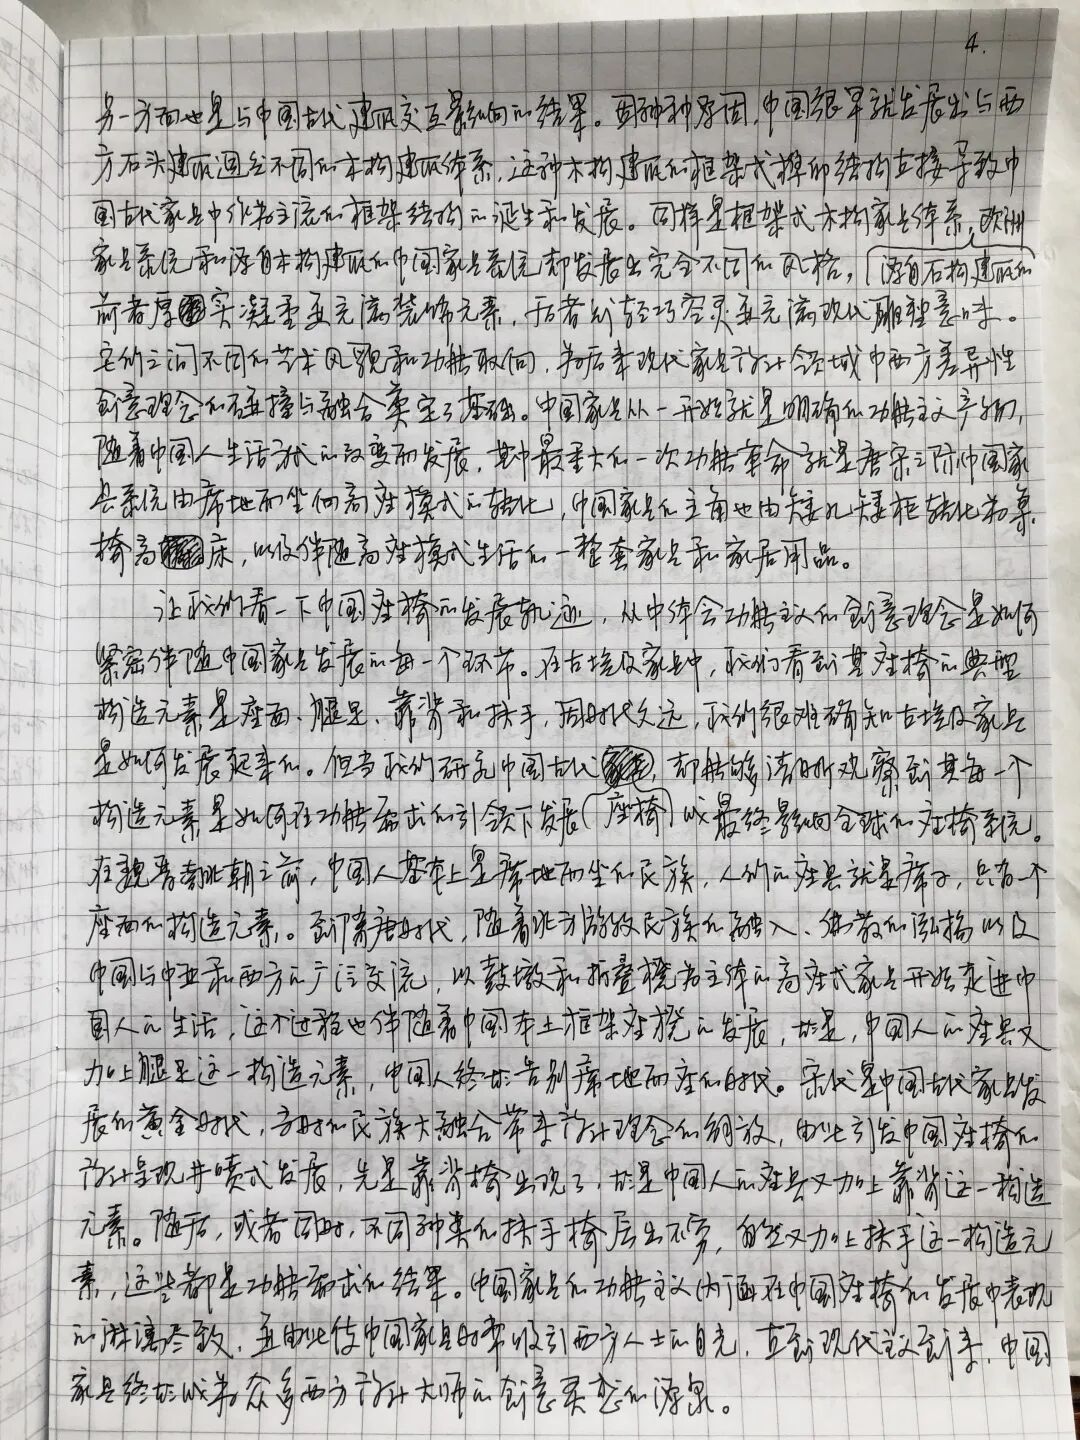 4.
另一方面也是与中国古代建筑交互影响的结果。因种种原因,中国很早就发展出与西
方石头建筑迥然不同的木构建筑体系,这种木构建筑的框架式榫卯结构直接导致中
国古代家具中作为主流的框架结构的诞生和发展。同样是框架式木构家具体系,欧洲
家具系统和源自木构建筑的中国家具系统却发展出完全不同的风格,(源自石构建筑的
前者厚实凝重更充满装饰元素,后者则轻巧空灵更充满现代雕塑意味。
它们之间不同的艺术风貌和功能取向,为后来现代家具设计领域中西方差异性
创意理念的碰撞与融合奠定了基础。中国家具从一开始就是明确的功能主义产物,
随着中国人生活方式的改变而发展,其中最重大的一次功能革命就是唐宋之际中国家
具系统由席地而坐向高座模式的转化,中国家具的主角也由矮几矮柜转化为桌
椅高床,以及伴随高座模式生活的一整套家具和家居用品。
让我们看一下中国座椅的发展轨迹,从中体会功能主义的创意理念是如何
紧密伴随中国家具发展的每一个环节。在古埃及家具中,我们看到其座椅的典型
构造元素是座面、腿足、靠背和扶手,因时代久远,我们很难确知古埃及家具
是如何发展起来的。但当我们研究中国古代,却能够清晰观察到其每一个
构造元素是如何在功能需求的引领下发展(座椅)成最终影响全球的座椅系统。
在魏晋南北朝之前,中国人基本上是席地而坐的民族,人们的座具就是席子,只有一个
座面的构造元素。到隋唐时代,随着北方游牧民族的融入、佛教的弘扬以及
中国与中亚和西方的广泛交流,以鼓墩和折叠櫈为主体的高座式家具开始走进中
国人的生活,这个过程也伴随着中国本土框架座櫈的发展,于是,中国人的座具又
加上腿足这一构造元素,中国人终于告别席地而座的时代。宋代是中国古代家具发
展的黄金时代,当时的民族大融合带来设计理念的绸放,由此引发中国座椅的
设计呈现井喷式发展,先是靠背椅出现了,于是中国人的座具又加上靠背这一构造
元素。随后,或者同时,不同种类的扶手椅层出不穷,自然又加上扶手这一构造元
素,这些都是功能需求的结果。中国家具的功能主义内涵在中国座椅的发展中表现
的淋漓尽致,并由此使中国家具时常吸引西方人士的目光,直到现代主义到来,中国
家具终于成为众多西方设计大师的创意灵感的源泉。